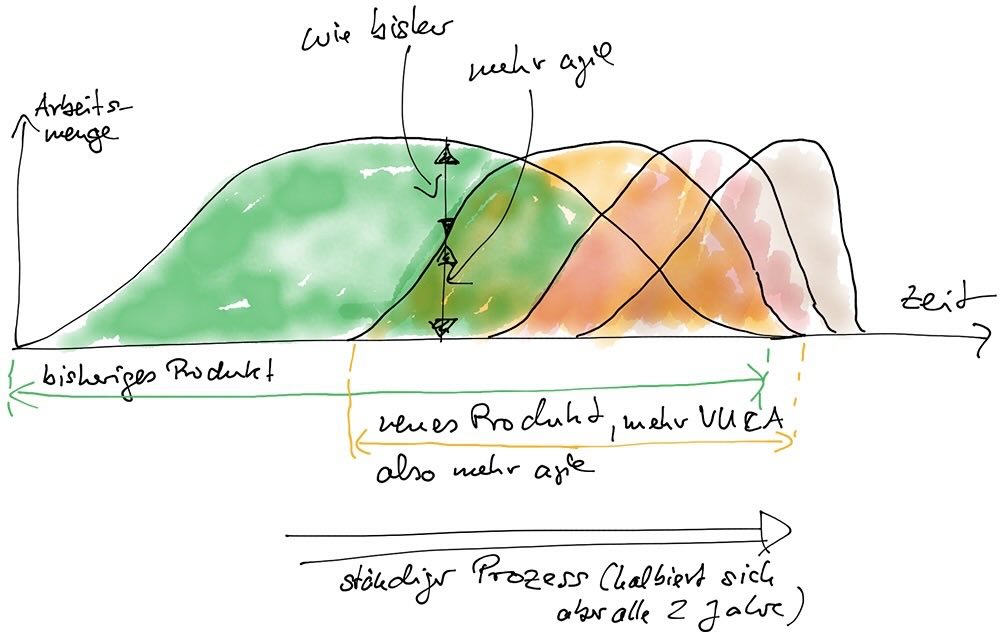 wie bisher
mehr agil
Arbeits-
menge
Zeit
bisheriges Produkt
neues Produkt, mehr VUCA
also mehr agil
ständiger Prozess (halbiert sich
aber alle 2 Jahre)